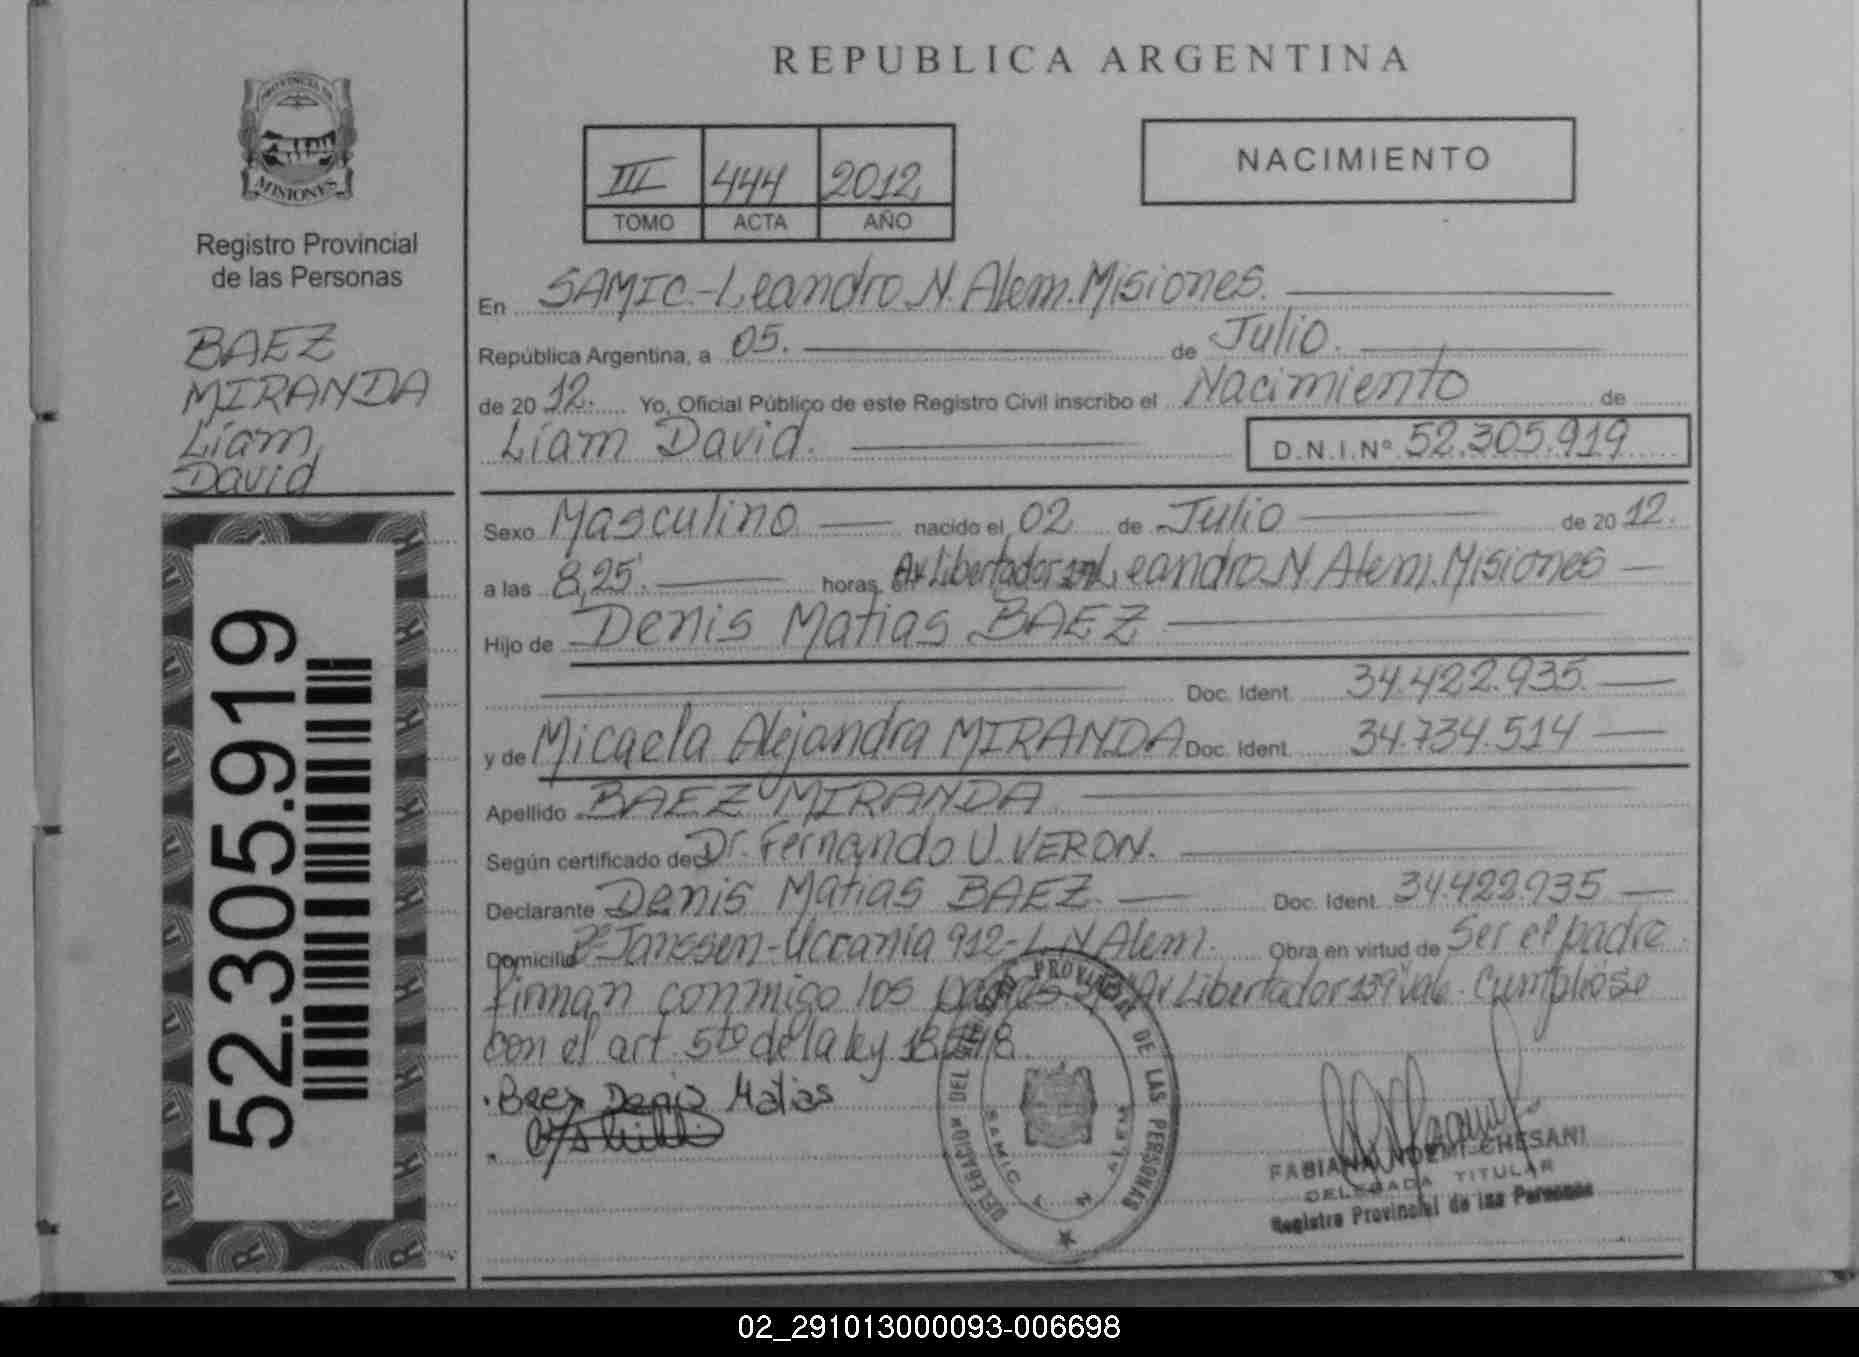 REPUBLICA ARGENTINA
PROVINCIA DE
MISIONES
Registro Provincial
de las Personas
BAEZ
MIRANDA
Liam
David
52.305.919
III 444 2012
TOMO ACTA AÑO
NACIMIENTO
En SAMIC-Leandro N. Alem. Misiones.
República Argentina, a 05. de Julio.
de 2012. Yo, Oficial Público de este Registro Civil inscribo el Nacimiento de
Liam David. D.N.I.Nº 52.305.919
Sexo Masculino nacido el 02 de Julio de 2012.
a las 8,25'. horas, en Av Libertador Leandro N Alem. Misiones
Hijo de Denis Matias BAEZ
Doc. Ident. 34.422.935.
y de Micaela Alejandra MIRANDA Doc. Ident. 34.734.514
Apellido BAEZ MIRANDA
Según certificado de Dr. Fernando U. VERON.
Declarante Denis Matias BAEZ. Doc. Ident. 34.422.935
Domicilio Janssen-Ucrania 912-L N Alem. Obra en virtud de Ser el padre.
Firman conmigo los Av Libertador 139 Vale. Cumpliose
con el art. 5to de la ley
Baez Denis Matias
DELEGACION DEL REGISTRO PROVINCIAL DE LAS PERSONAS
SAMIC L N ALEM
FABIANA NOEMI CHESANI
DELEGADA TITULAR
Registro Provincial de las Personas
02_291013000093-006698